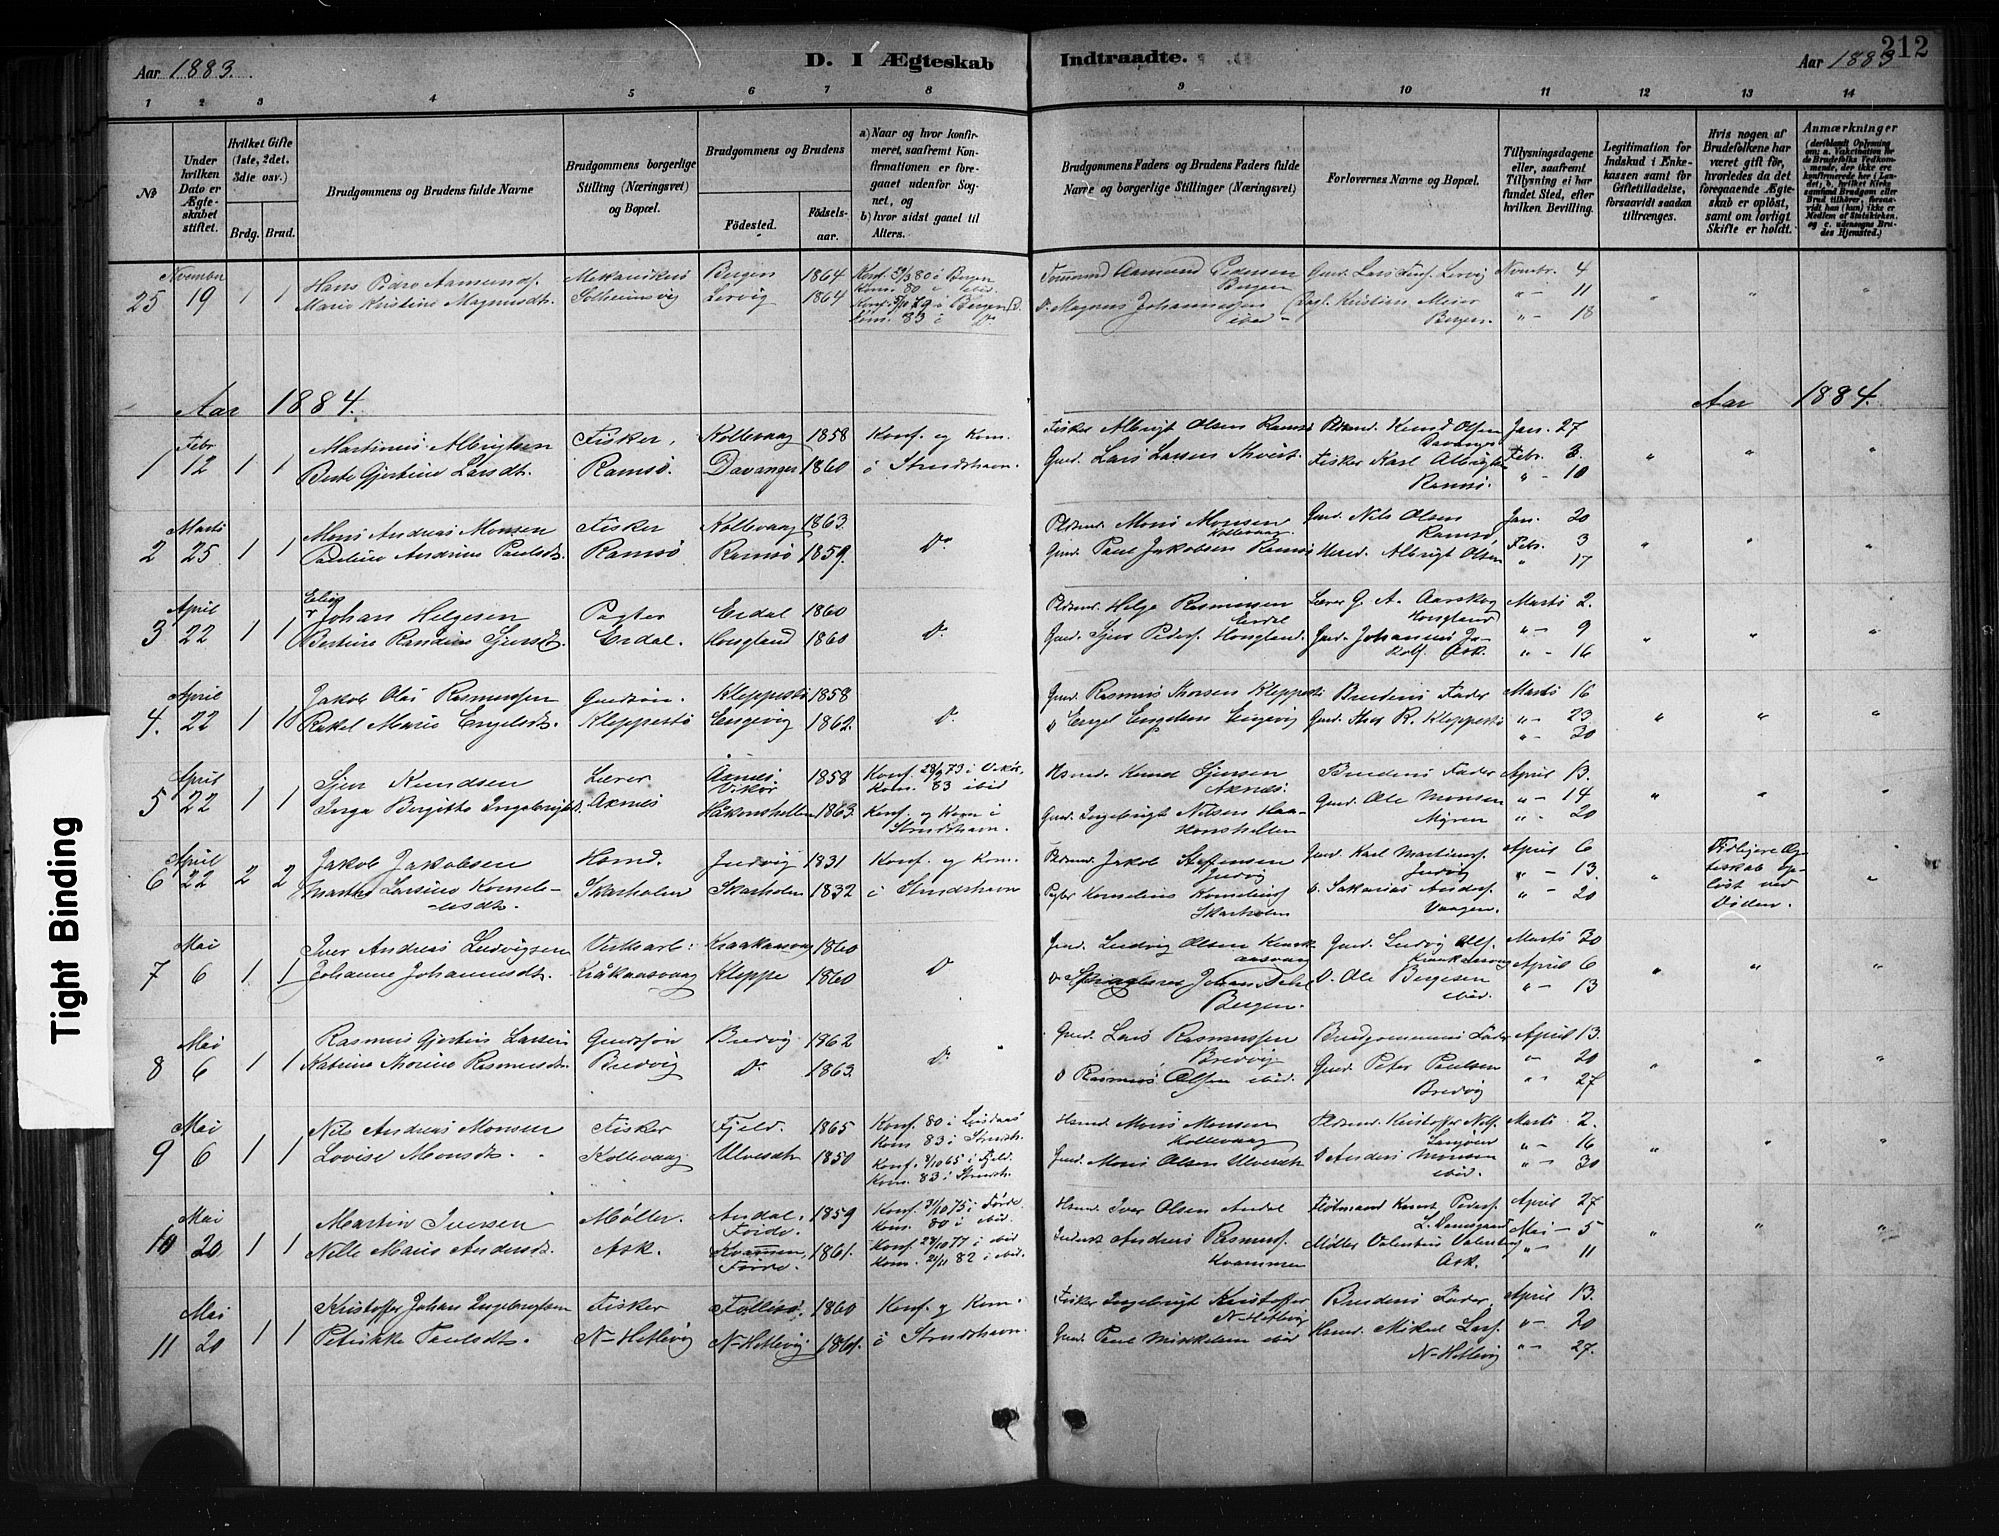 212
Aar 1883.
D. I Ægteskab Indtraadte.
Aar 1883
1 2 3 4 5 6 7 8 9 10 11 12 13 14
No
Under hvilken Dato er Ægteskabet stiftet.
Hvilket Gifte (1ste, 2det, 3die osv.)
Brdg. Brud.
Brudgommens og Brudens fulde Navne
Brudgommens borgerlige Stilling (Næringsvei) og Bopæl.
Brudgommens og Brudens
Fødested. Fødselsaar.
a) Naar og hvor konfirmeret, saafremt Konfirmationen er foregaaet udenfor Sognet, og
b) hvor sidst gaaet til Alters.
Brudgommens Faders og Brudens Faders fulde Navne og borgerlige Stillinger (Næringsvei)
Forlovernes Navne og Bopæl.
Tillysningsdagene eller, saafremt Tillysning ei har fundet Sted, efter hvilken Bevilling.
Legitimation for Indskud i Enkekassen samt for Giftetilladelse, forsaavidt saadan tiltrænges.
Hvis nogen af Brudefolkene har været gift før, hvorledes da det foregaaende Ægteskab er opløst, samt om lovligt Skifte er holdt.
Anmærkninger
25 19 1 1
Hans Pedro Aamunds.
Marie Kristine Magnusdt.
Mekanikus
Solheimsvig
Bergen 1864
Lervig 1864
Aamund Pedersen Bergen
Magnus Johannesen ibid
Kristian Meier Bergen.
Novmbr. 4
" 11
" 18
Aar 1884.
Aar 1884.
1 Febr 12 1 1
Martinus Albrigtsen
Berte Gjertine Larsdt.
Fisker,
Ramsø.
Kollevaag 1858
Davanger 1860
Konf. og Kom.
i Strudshavn.
Fisker Albrigt Olsen Ramsø
Gmd. Lars Larsen
Knud Olsen Davanger
Fisker Karl Albrigtsen Ramsø.
Jan. 27
Febr. 3.
" 10
2 Marts 25 1 1
Mons Andreas Monsen
Pauline Andrine Paulsdt.
Fisker
Ramsø
Kollevaag 1863.
Ramsø 1859.
Do
Pldsmd. Mons Monsen Kollevaag
Gmd. Paul Jakobsen Ramsø
Gmd. Nils Olsen Ramsø
Albrigt Olsen
Jan. 20
Febr. 3
" 17
3 April 22 1 1
Johan Helgesen
Bertine Randine Sjursdt.
Pagter
Erdal.
Erdal 1860
Hougland 1860
Do
Pldsmd. Helge Rasmussen Erdal
Gmd. Sjur Peders. Hougland.
Lærer G. A. Aarskog Hougland
Gmd. Johannes Ja-
kobs. Ask.
Marts 2.
" 9
" 16
4. April 22 1 1
Jakob Olai Rasmussen
Rakel Marie Engelsdt.
Gmdsøn.
Kleppestø
Kleppestø 1858
Engevig 1862.
Do
Gmd. Rasmus Monsen Kleppestø
" Engel Engelsen Engevig
Brudens Fader
Gmd. R. Kleppestø
Marts 16
" 23
" 30
5 April 22 1 1
Sjur Knudsen
Inga Birgitte Ingebrigtsdt.
Lærer
Aknes
Axnes. Vikør 1858
Håkonshellen 1863.
Konf. 28/9 73 i Vikør,
Kom. 83 ibid
Konf. og Kom i
Strudshavn.
Hsmd. Knud Sjursen Aknes.
Gmd. Ingebrigt Nilsen Haa-
konshellen
Brudens Fader
Gmd. Ole Monsen Myren
April 13.
" 14
" 20
6 April 22 2 2
Jakob Jakobsen
Marthe Larsine Korneli-
usdt.
Hsmd.
Skarholen
Judvig 1831
Skarholen 1832
Konf. og Kom.
i Strudshavn
Plsmd. Jakob Steffensen Judvig
Pagter Kornelius Korneliuss. Skarholen
Gmd. Karl Martinus. Judvig
D. Sakarias Anders. Vaagen.
April 6
" 13.
" 20
Tidligere Æg-
teskab op-
løst ved
Døden.
7 Mai 6 1 1
Iver Andreas Ludvigsen
Johanne Johannesdt.
Verkarb.
Kråkaasvaag
Kraakaasvaag 1860
Kleppe 1860
Do
Gmd. Ludvig Olsen Kraak-
aasvaag
Johan Dahl Bergen.
Gmd. Ludvig Ols. Kraakaasvaag
D. Ole Børgesen ibid.
Marts 30
April 6
" 13
8 Mai 6 1 1
Rasmus Gjertin Larsen
Katrine Monine Rasmusdt.
Gmdsøn
Bredvig
Bredvig 1862
Do 1863.
Do
Gmd. Lars Rasmussen Bredvig
D Rasmus Olsen ibid.
Brudgommens Fader
Gmd. Peter Paulsen Bredvig
April 13.
" 20
" 27
9 Mai 6 1 1
Nils Andreas Monsen
Lovise Monsdt.
Fisker
Kollevaag
Fjeld. 1865
Ulvesdt 1850
Konf. 80 i Lindaas
Kom 83 i Strudsh.
Konf. 8/10 65 i Fjeld.
Kom. 83 i Strudsh.
Hsmd. Mons Monsen Kollevaag
Gmd. Mons Olsen Ulvesdt
Plsmd. Kristoffer Nils.
D Anders Monsen ibid.
Marts 2.
" 16
" 30
10 Mai 20 1 1
Martin Iversen
Nille Marie Andersdt.
Møller.
Ask.
Andal, Førde. 1859
Kvammen Førde. 1861.
Konf. 31/10 75 i Førde
Kom. 80 i ibid.
Konf. 28/10 77 i ibid
Kom. 21/11 82 i ibid.
Hsmd. Iver Olsen Andal
Anders Rasmus. Kvammen
Flotmand Knut Peders.
L. Damsgaard
Møller Valentin Valentins. Ask.
April 27
Mai 5
" 11
11 Mai 20 1 1
Kristoffer Johan Ingebrigtsen
Petrikke Paulsdt.
Fisker
N-Hetlevig
Follesø. 1860
N-Hetlevig 1861.
Konf. og Kom.
i Strudshavn.
Fisker Ingebrigt Kristoffers. N-Hetlevig
Gmd. Paul Mikkelsen ibid
Brudens Fader.
Hsmd. Mikal Lars. N-Hetlevig
April 13.
" 20
" 27.
Tight Binding